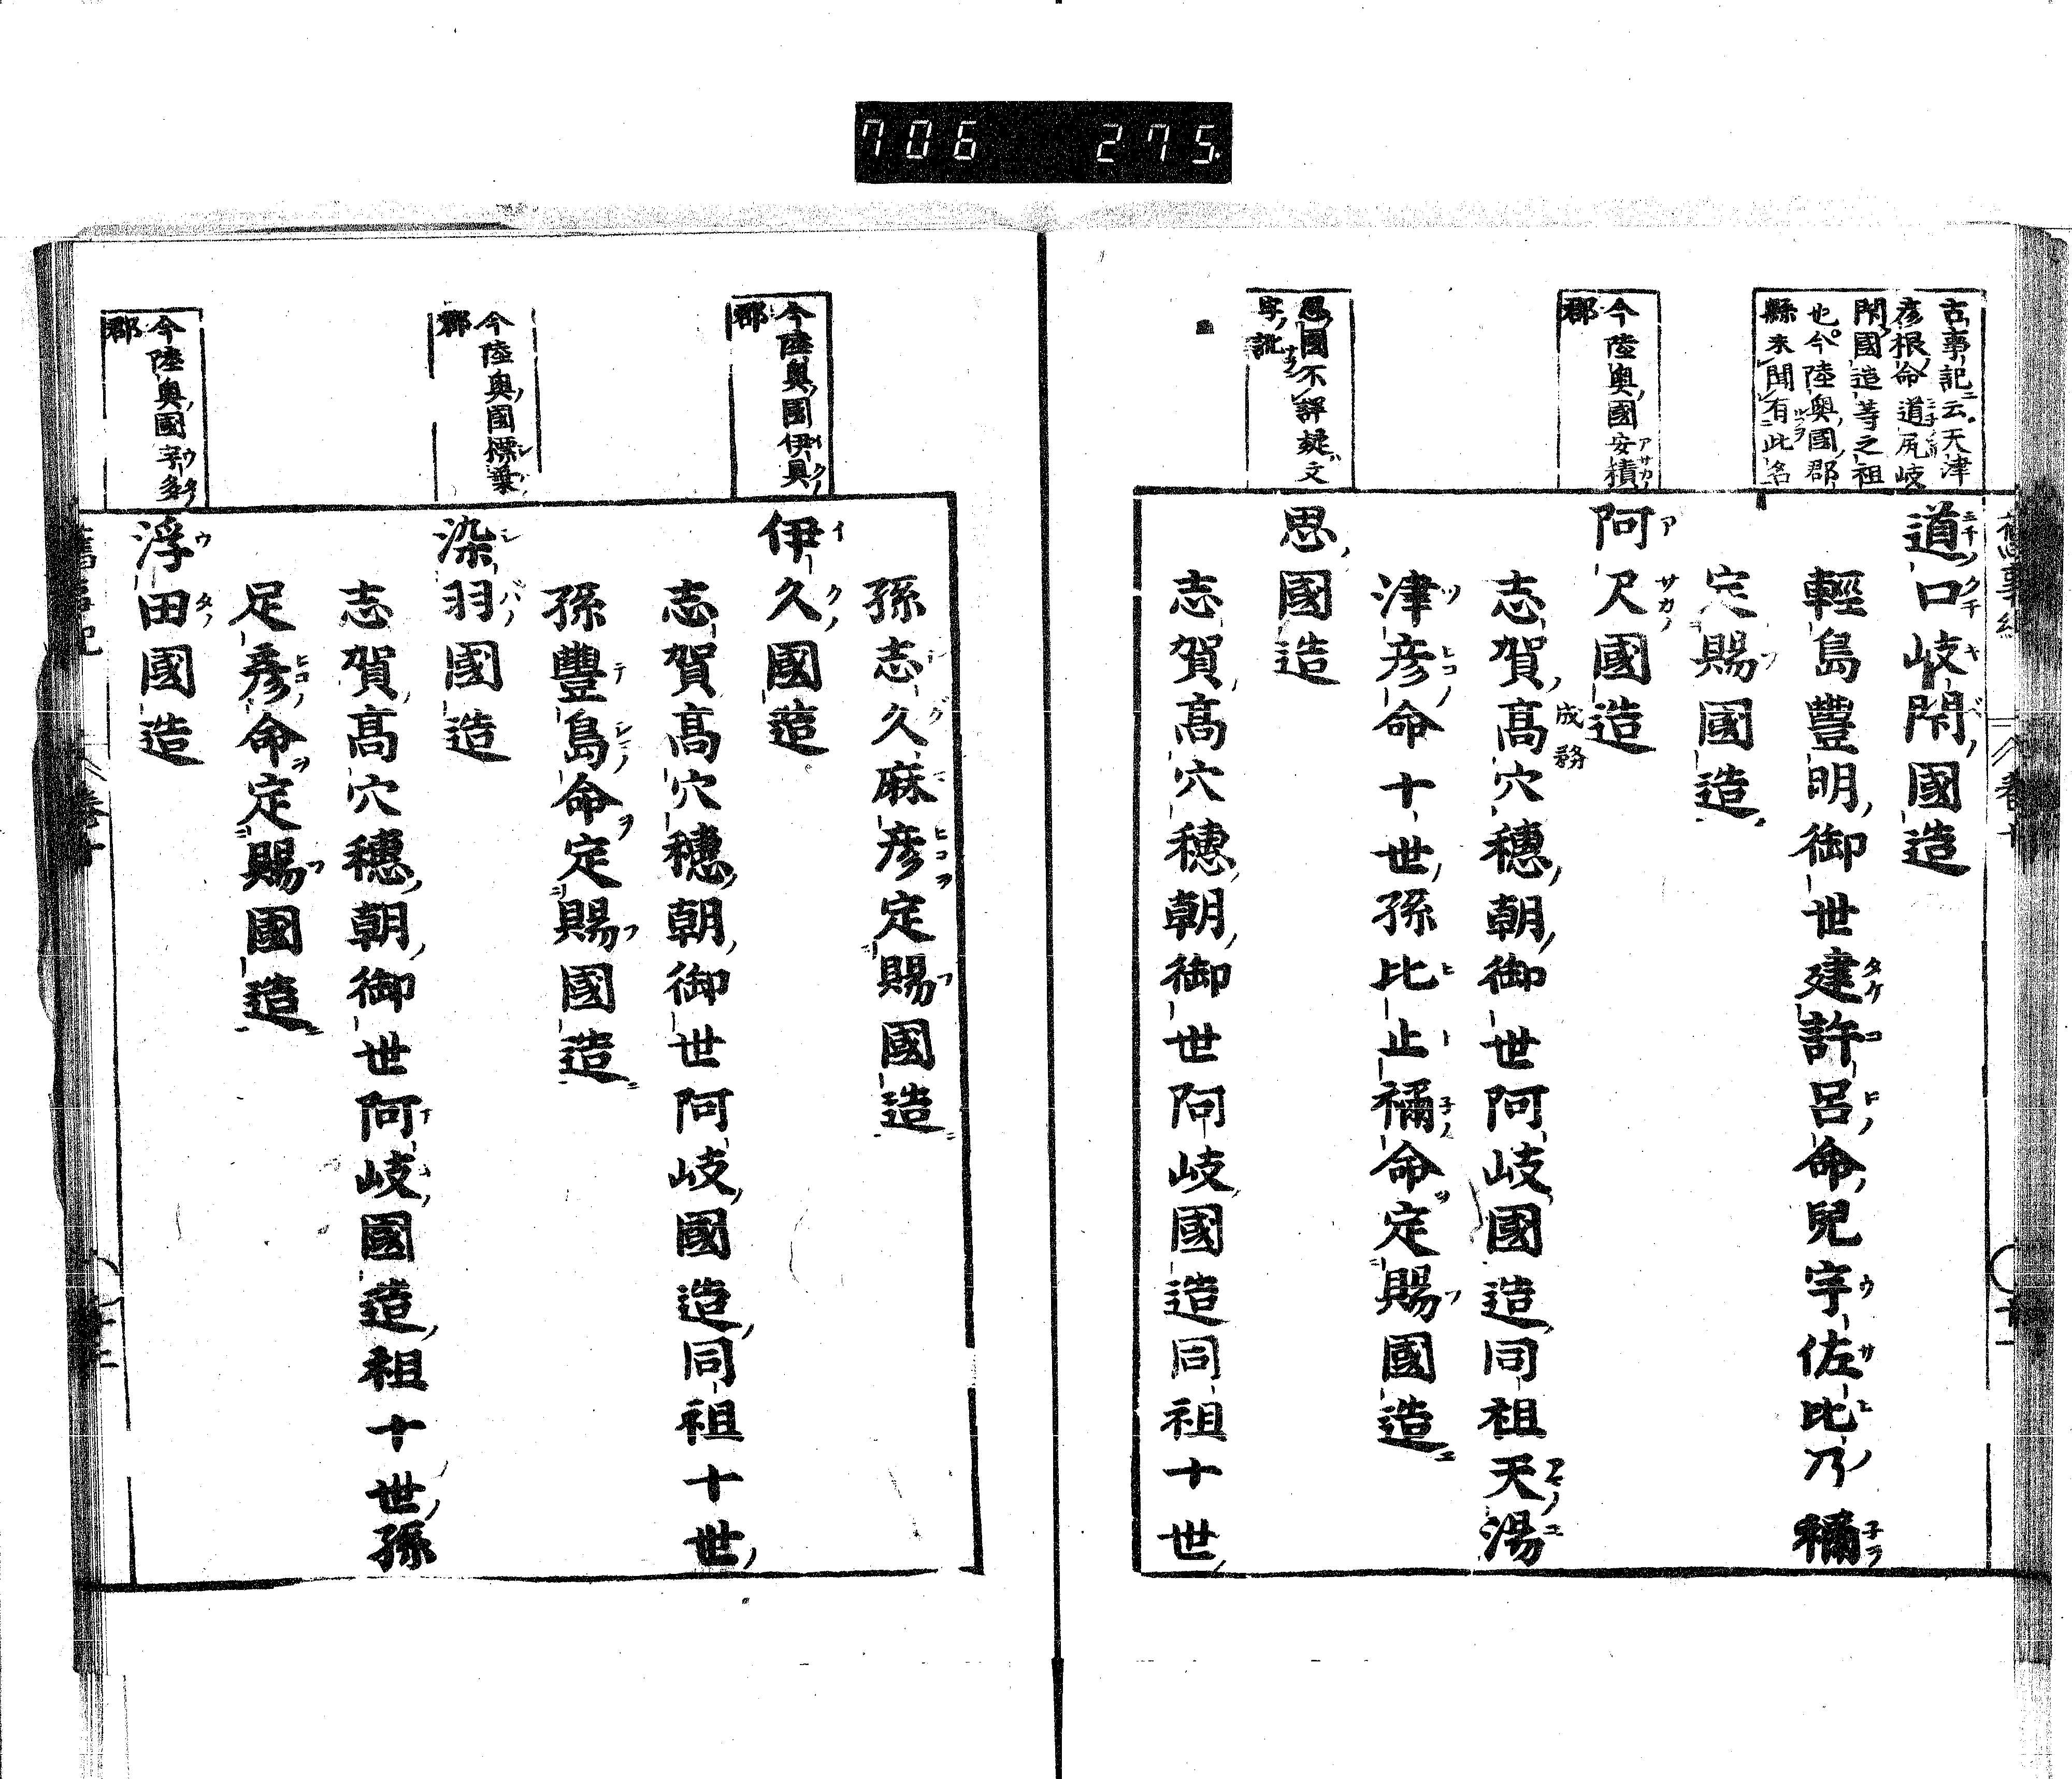 706 275
古事記云天津
彦根命道尻岐
閇國造等之祖
也今陸奥國郡
縣未聞有此名
道口岐閇國造
輕島豐明御世建許呂命兒宇佐比乃禰
定賜國造
今陸奥國安積
郡
阿尺國造
志賀高穴穗朝御世阿岐國造同祖天湯
成務
津彦命十世孫比止禰命定賜國造
思國不詳疑文
字訛
思國造
志賀高穴穗朝御世阿岐國造同祖十世
孫志久麻彦定賜國造
今陸奥國伊具
郡
伊久國造
志賀高穴穗朝御世阿岐國造同祖十世
孫豐島命定賜國造
今陸奥國標葉
郡
染羽國造
志賀高穴穗朝御世阿岐國造祖十世孫
足彦命定賜國造
今陸奥國宇多
郡
浮田國造